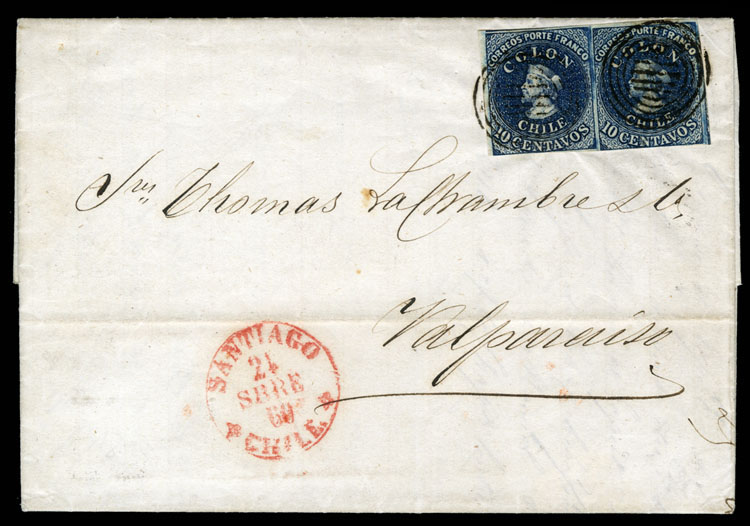 CORREOS PORTE FRANCO
COLON
CHILE
10 CENTAVOS
CORREOS PORTE FRANCO
COLON
CHILE
10 CENTAVOS
Srs Thomas LaChambre & Co.
Valparaiso
SANTIAGO
24
SBRE
60
CHILE